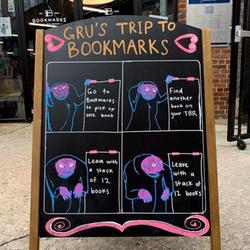 BOOKMARKS
GRU'S TRIP TO
BOOKMARKS
Go to
BOOKMARKS
to pick up
one book
Find
another
book on
your TBR
Leave with
a stack
of 12
books
Leave
with a
stack of
12 books